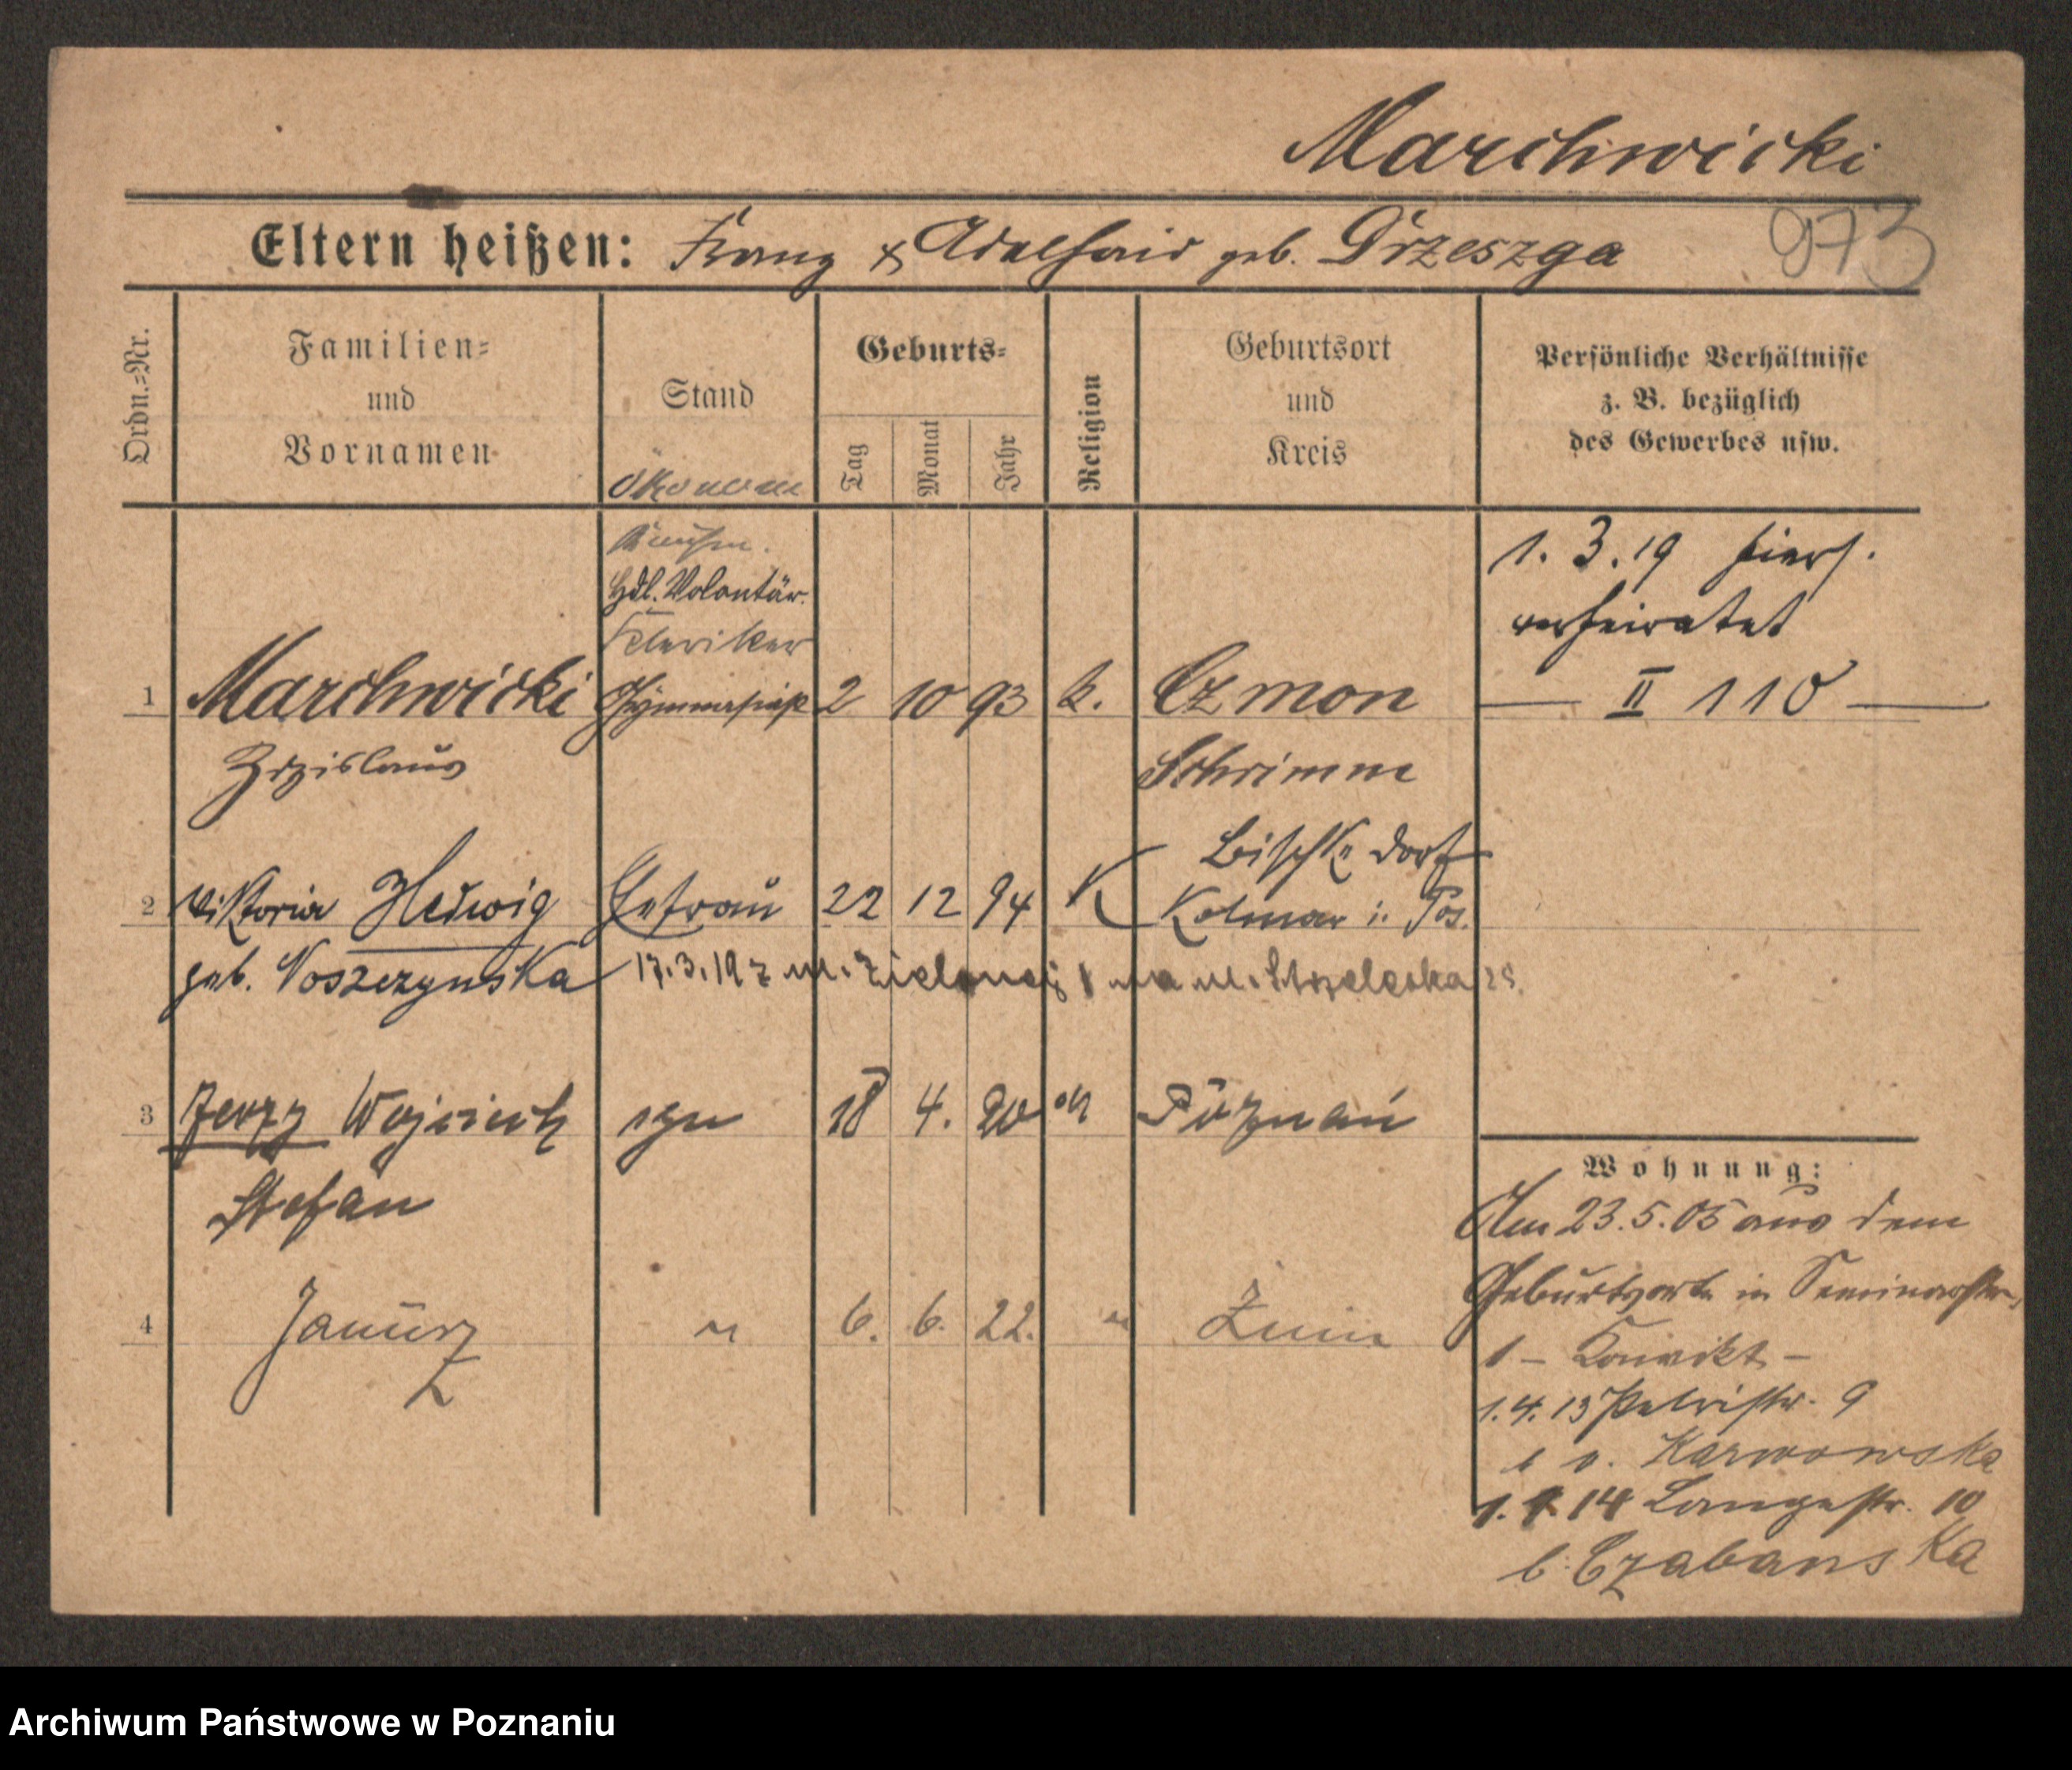 Marchwicki
Eltern heißen: Franz & Adelheid geb. Drzeszga
973
Ordn.=Nr.
Familien=
und
Vornamen
Stand
Geburts=
Tag
Monat
Jahr
Religion
Geburtsort
und
Kreis
Persönliche Verhältnisse
z. B. bezüglich
des Gewerbes usw.
Ökonom
Kaufm.
Hdl. Volontär.
Kleriker
1 Marchwicki Gymnasiast 2 10 93 k. Czmon
Zdzislaus
Schrimm
1. 3. 19 hiers.
verheiratet
— II 110 —
2 Viktoria Hedwig Ehefrau 22 12 94 K
dorf
Kolmar i. Pos.
geb. Noszczynska 17.3.19 z ul. Zielonej 1 na ul. Strzelecka 28.
3 Jerzy Wojciech syn 18 4. 20 " Poznań
Stefan
4 Janusz " 6. 6. 22. " Żnin
Wohnung:
Am 23.5.05 aus dem
Geburtsorte in Seminarstr.
1 – Konvikt –
1.4.13 Petristr. 9
v. Karwowska
14 Langestr. 10
b. Czabanska
Archiwum Państwowe w Poznaniu